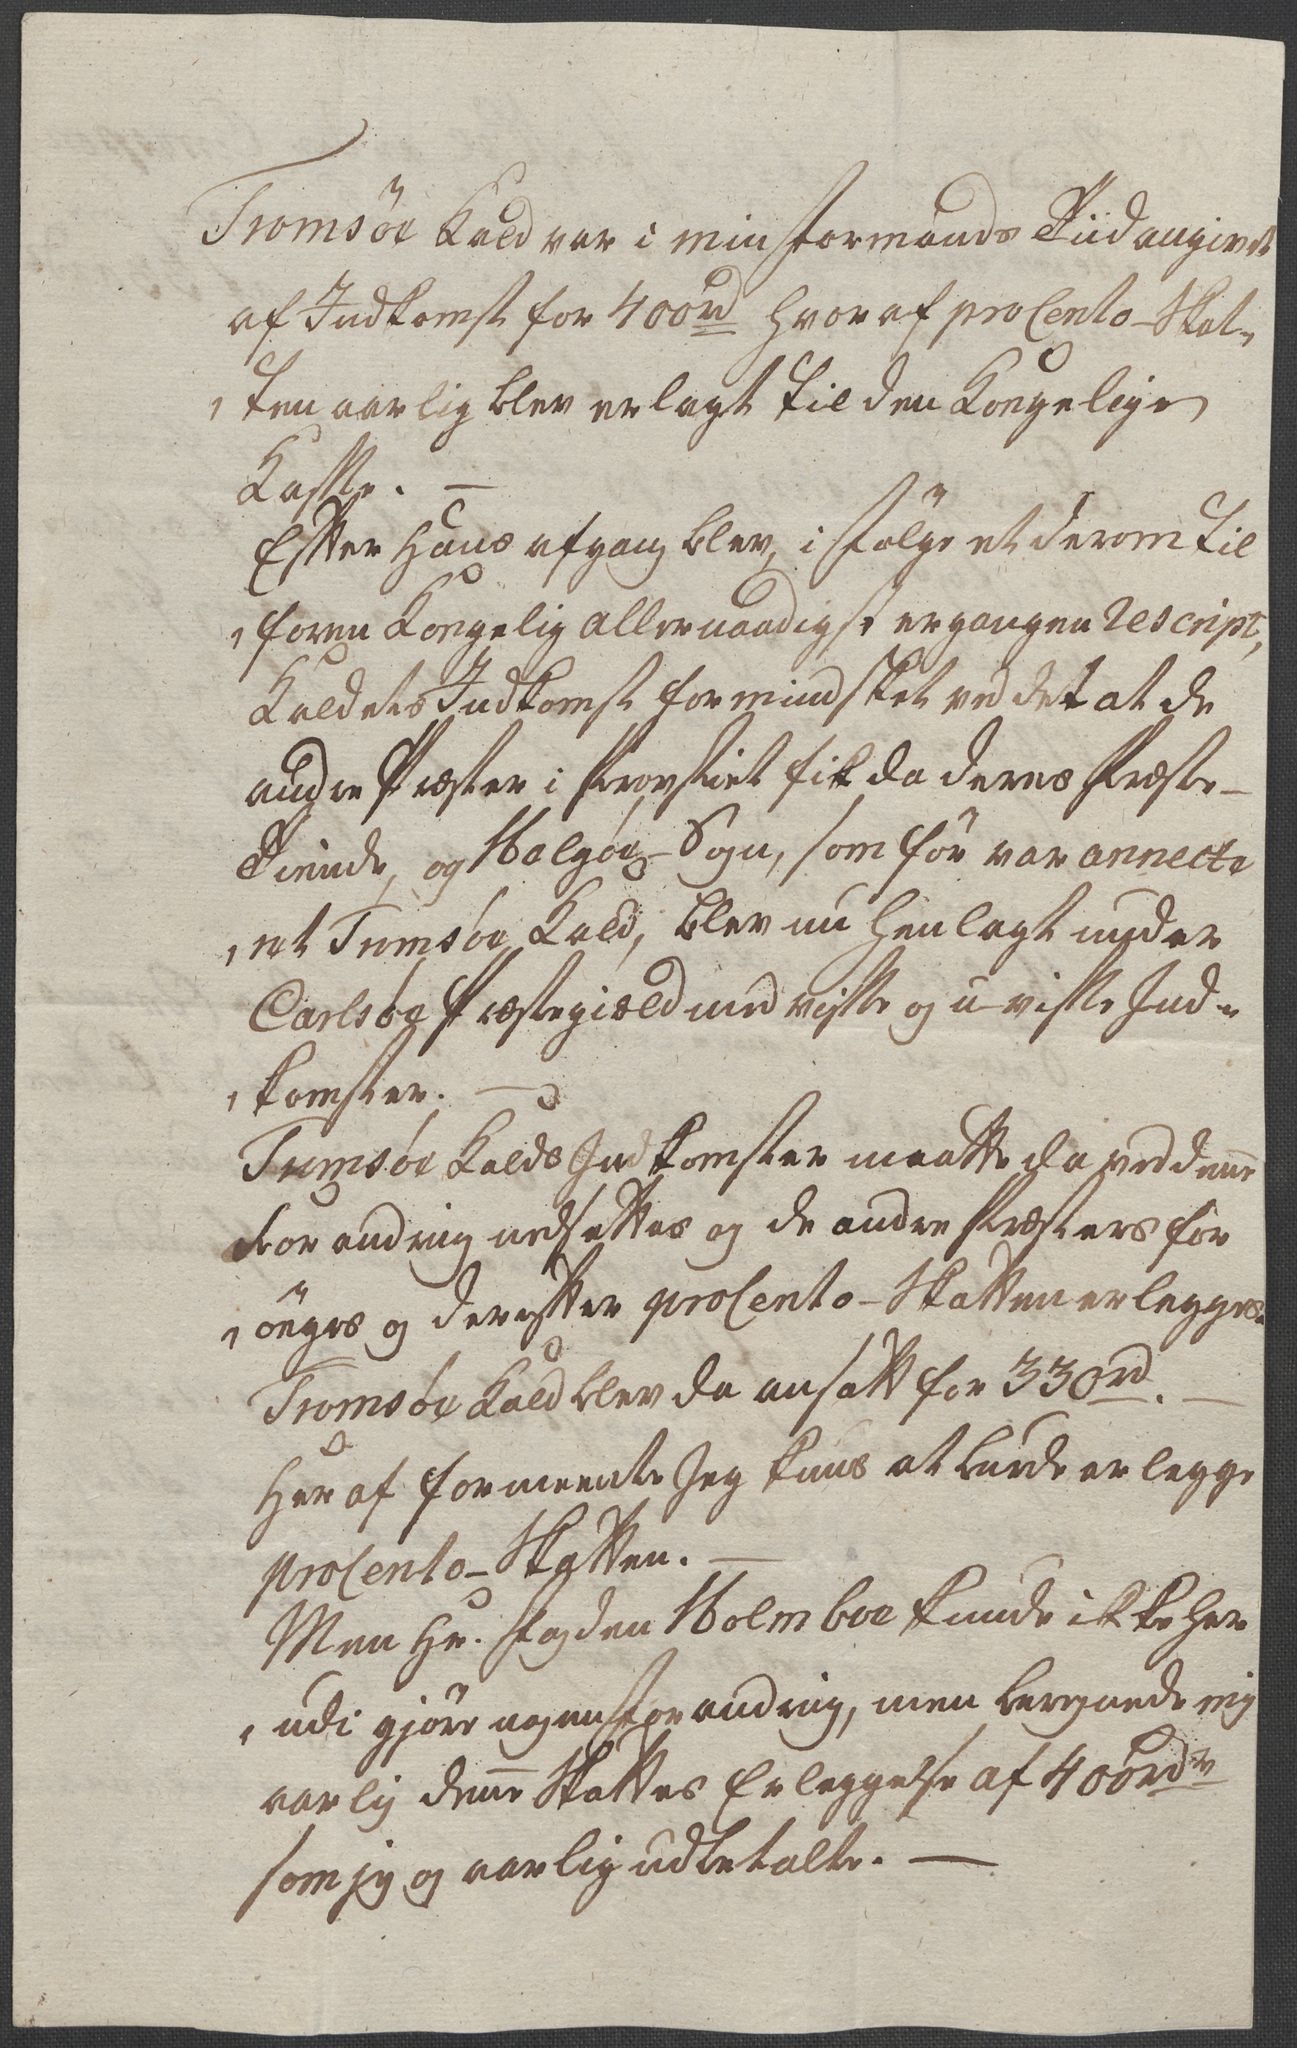 Tromsöe Kald var i min Formands Tiid angivet
af Indkomst for 400rd hvoraf proCento-Skat-
ten aarlig blev erlagt til den Kongelige
Kasse. —
Efter Hans afgang blev, i Følge et derom til
foren Kongelig allernaadigst ergangen Rescript,
Kaldets Indkomst formindsket ved det at de
andre Præster i Provstiet fik da deres Præste-
Tiende, og Helgöe-Sogn, som för var annecte
ret Tromsöe Kald, blev nu henlagt under
Carlsöe Præstegiæld med visse og u-visse Ind-
komster. —
Tromsöe Kalds Indkomster maatte da ved denne
Forandring nedsettes og de andre Præsters for
öeges og derefter proCento-Skatten erlegges.
Tromsöe Kald blev da ansatt for 330rd. —
Her af formeente Jeg kuns at burde erlegge
proCento-Skatten. —
Men Hr. Fogden Holmboe kunde ikke her
udi gjöre nogen Forandring, men beregnede mig
aarlig denne Skattes Erleggelse af 400rdr
som jeg og aarlig udbetalte. —